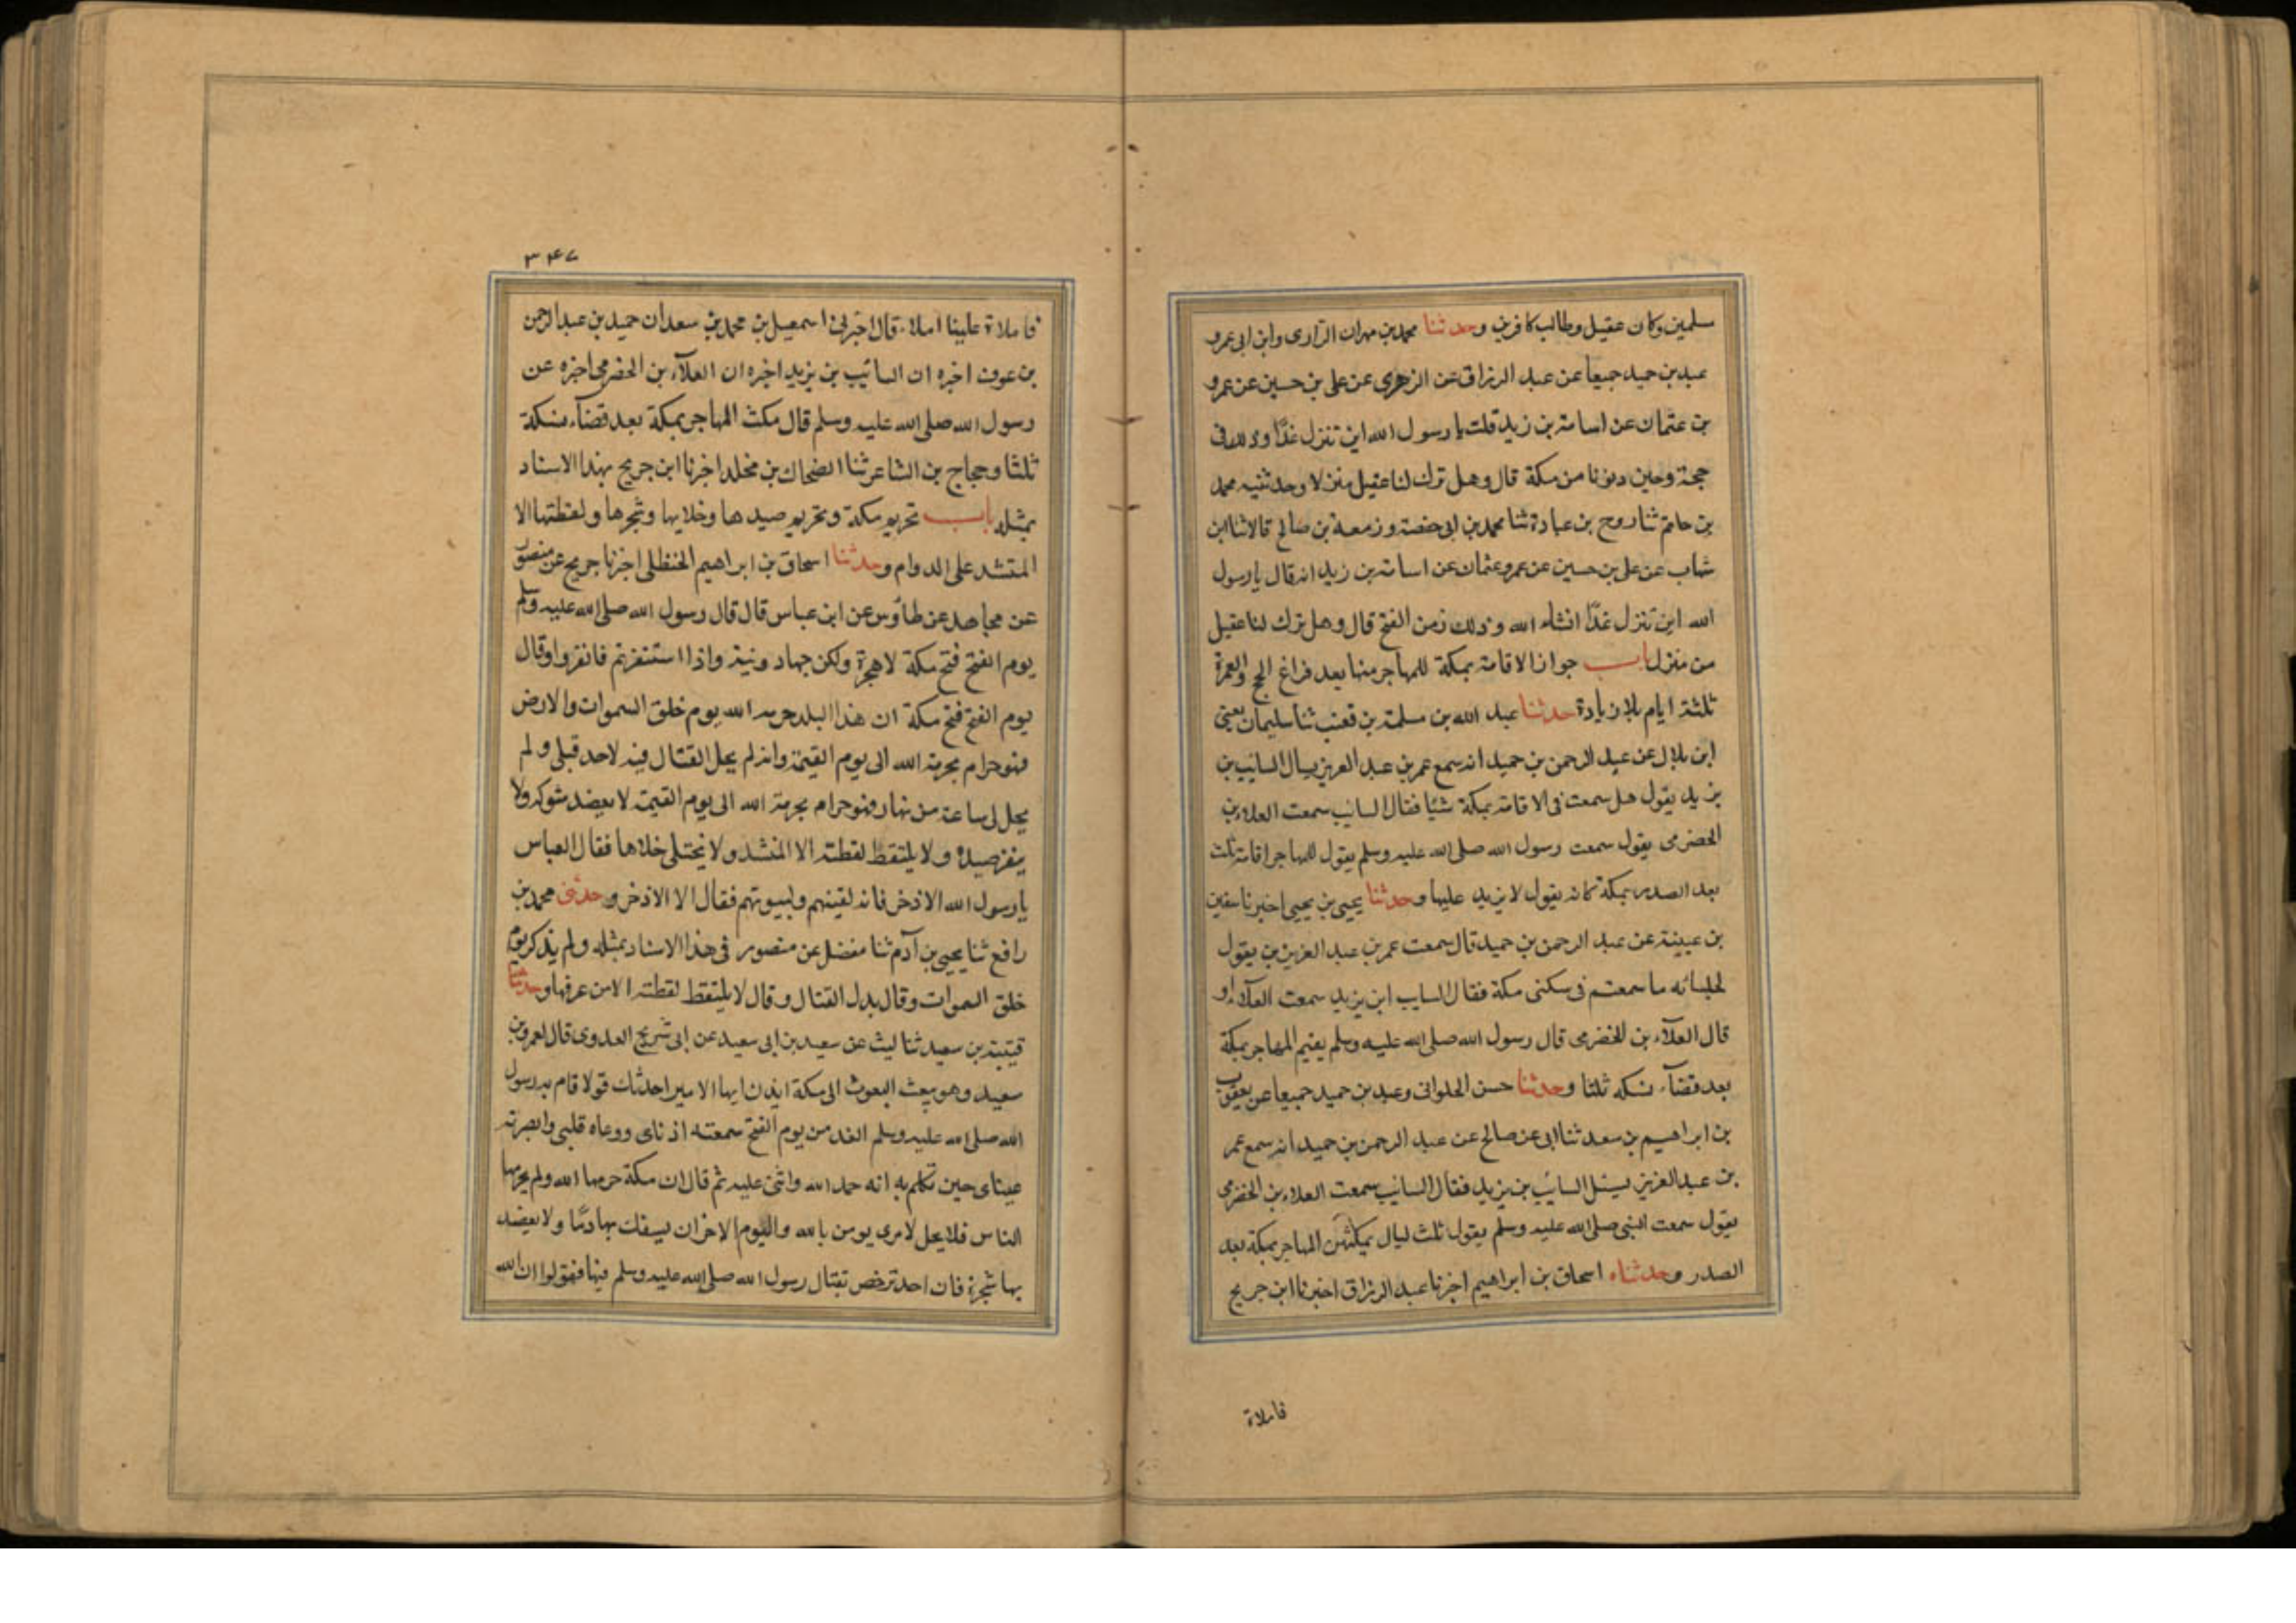 سلمين وكان عقيل وطالب كافرين وحدثنا محمد بن مهران الرازى وابن ابى عمرو
عبد بن حميد جميعا عن عبد الرزاق عن الزهرى عن على بن حسين عن عمرو
بن عثمان عن اسامة بن زيد قلت يا رسول الله اين تنزل غدًا وذلك فى
حجة وحين دنونا من مكة قال وهل ترك لنا عقيل منزلا وحدثنيه محمد
بن حاتم ثنا روح بن عبادة ثنا محمد بن ابى حفصة وزمعة بن صالح قالا ثنا ابن
شهاب عن على بن حسين عن عمرو عثمان عن اسامة بن زيد انه قال يا رسول
الله اين تنزل غدًا انشاء الله وذلك زمن الفتح قال وهل ترك لنا عقيل
من منزل باب جواز الاقامة بمكة للمهاجر منها بعد فراغ الحج والعمرة
ثلثة ايام بلا زيادة حدثنا عبد الله بن مسلمة بن قعنب ثنا سليمان يعنى
ابن بلال عن عبد الرحمن بن حميد انه سمع عمر بن عبد العزيز يسال السائب بن
يزيد يقول هل سمعت فى الاقامة بمكة شيًا فقال السائب سمعت العلاء بن
الحضرمى يقول سمعت رسول الله صلى الله عليه وسلم يقول للمهاجر اقامة ثلث
بعد الصدر بمكة كانه يقول لا يزيد عليها وحدثنا يحيى بن يحيى اخبرنا سفين
بن عيينة عن عبد الرحمن بن حميد قال سمعت عمر بن عبد العزيز بن يقول
لجلسائه ما سمعتم فى سكنى مكة فقال السايب ابن يزيد سمعت العلآء او
قال العلآء بن الحضرمى قال رسول الله صلى الله عليه وسلم يقيم المهاجر بمكة
بعد قضآء نسكه ثلثا وحدثنا حسن الحلوانى وعبد بن حميد جميعا عن يعقوب
بن ابراهيم بن سعد ثنا ابى عن صالح عن عبد الرحمن بن حميد انه سمع عمر
بن عبد العزيز يسئل السائب بن يزيد فقال السائب سمعت العلاء بن الحضرمى
يقول سمعت النبى صلى الله عليه وسلم يقول ثلث ليال يمكثهن المهاجر بمكة بعد
الصدر وحدثناه اسحاق بن ابراهيم اخبرنا عبد الرزاق اخبرنا ابن جريج
فاملاة
٣٤٧
فاملاة علينا املاء قال اخبرنى اسمعيل بن محمد بن سعد ان حميد بن عبد الرحمن
بن عوف اخبره ان السائب بن يزيد اخبره ان العلآء بن الحضرمى اخبره عن
رسول الله صلى الله عليه وسلم قال مكث المهاجر بمكة بعد قضآء نسكة
ثلثا وحجاج بن الشاعر ثنا الضحاك بن مخلد اخبرنا ابن جريج بهذا الاسناد
بمثله باب تحريم مكة وتحريم صيدها وخلايها وشجرها ولقطتها الا
المتشد على الدوام وحدثنا اسحاق بن ابراهيم الحنظلى اخبرنا جريج عن منصور
عن مجاهد عن طاؤس عن ابن عباس قال قال رسول الله صلى الله عليه وسلم
يوم الفتح فتح مكة لا هجرة ولكن جهاد ونية واذا استنفرتم فانفروا وقال
يوم الفتح فتح مكة ان هذا البلد حرمه الله يوم خلق السموات والارض
فهو حرام بحرمة الله الى يوم القيمة وانه لم يحل القتال فيه لاحد قبلى ولم
يحل لى ساعة من نهار فهو حرام بحرمة الله الى يوم القيمة لا يعضد شوكه ولا
ينفر صيده ولا يلتقط لقطته الا المنشد ولا يختلى خلاها فقال العباس
يا رسول الله الاذخر فانه لقينهم ولبيوتهم فقال الا الاذخر وحدثنى محمد بن
رافع ثنا يحيى بن آدم ثنا مفضل عن منصور فى هذا الاسناد بمثله ولم يذكر يوم
خلق السموات وقال بدل القتال وقال لا يلتقط لقطته الا من عرفها وحدثنا
قتيبة بن سعيد ثنا ليث عن سعيد بن ابى سعيد عن ابى شريح العدوى قال لعمرو بن
سعيد وهو يبعث البعوث الى مكة ايذن ايها الامير احدثك قولا قام به رسول
الله صلى الله عليه وسلم الغد من يوم الفتح سمعته اذناى ووعاه قلبى وابصرته
عيناى حين تكلم به انه حمد الله واثنى عليه ثم قال ان مكة حرمها الله ولم يحرمها
الناس فلا يحل لامرى يومن بالله واليوم الاخر ان يسفك بها دمًا ولا يعضد
بها شجرة فان احد ترخص بقتال رسول الله صلى الله عليه وسلم فيها فقولوا ان الله